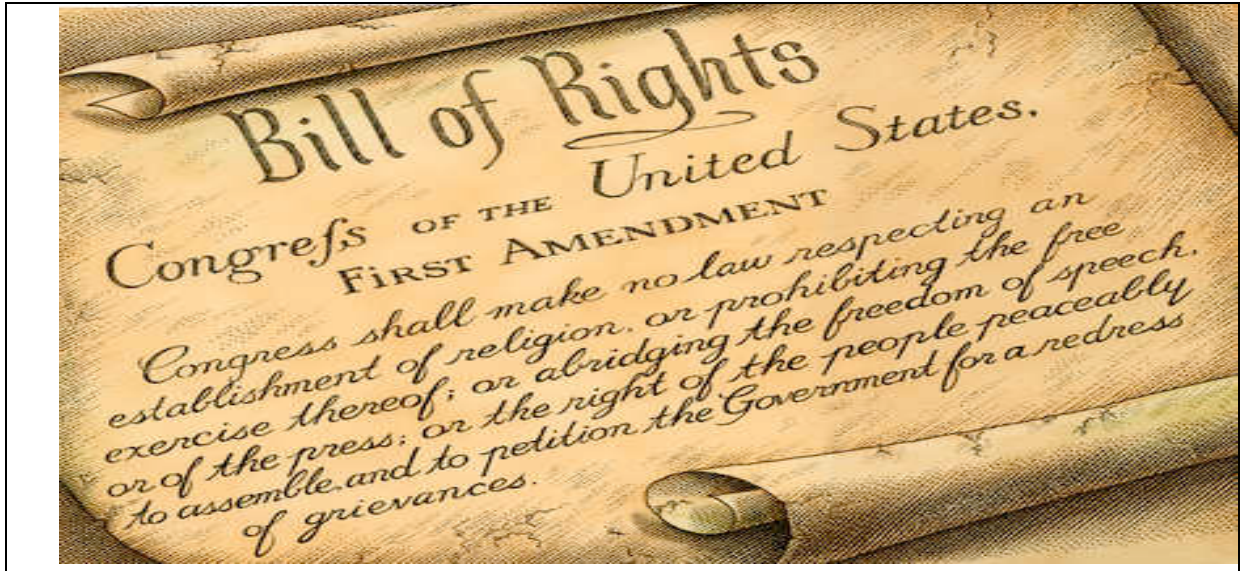 Bill of Rights
Congreſs OF THE United States.
FIRST AMENDMENT
Congress shall make no law respecting an
establishment of religion, or prohibiting the free
exercise thereof; or abridging the freedom of speech,
or of the press; or the right of the people peaceably
to assemble, and to petition the Government for a redress
of grievances.